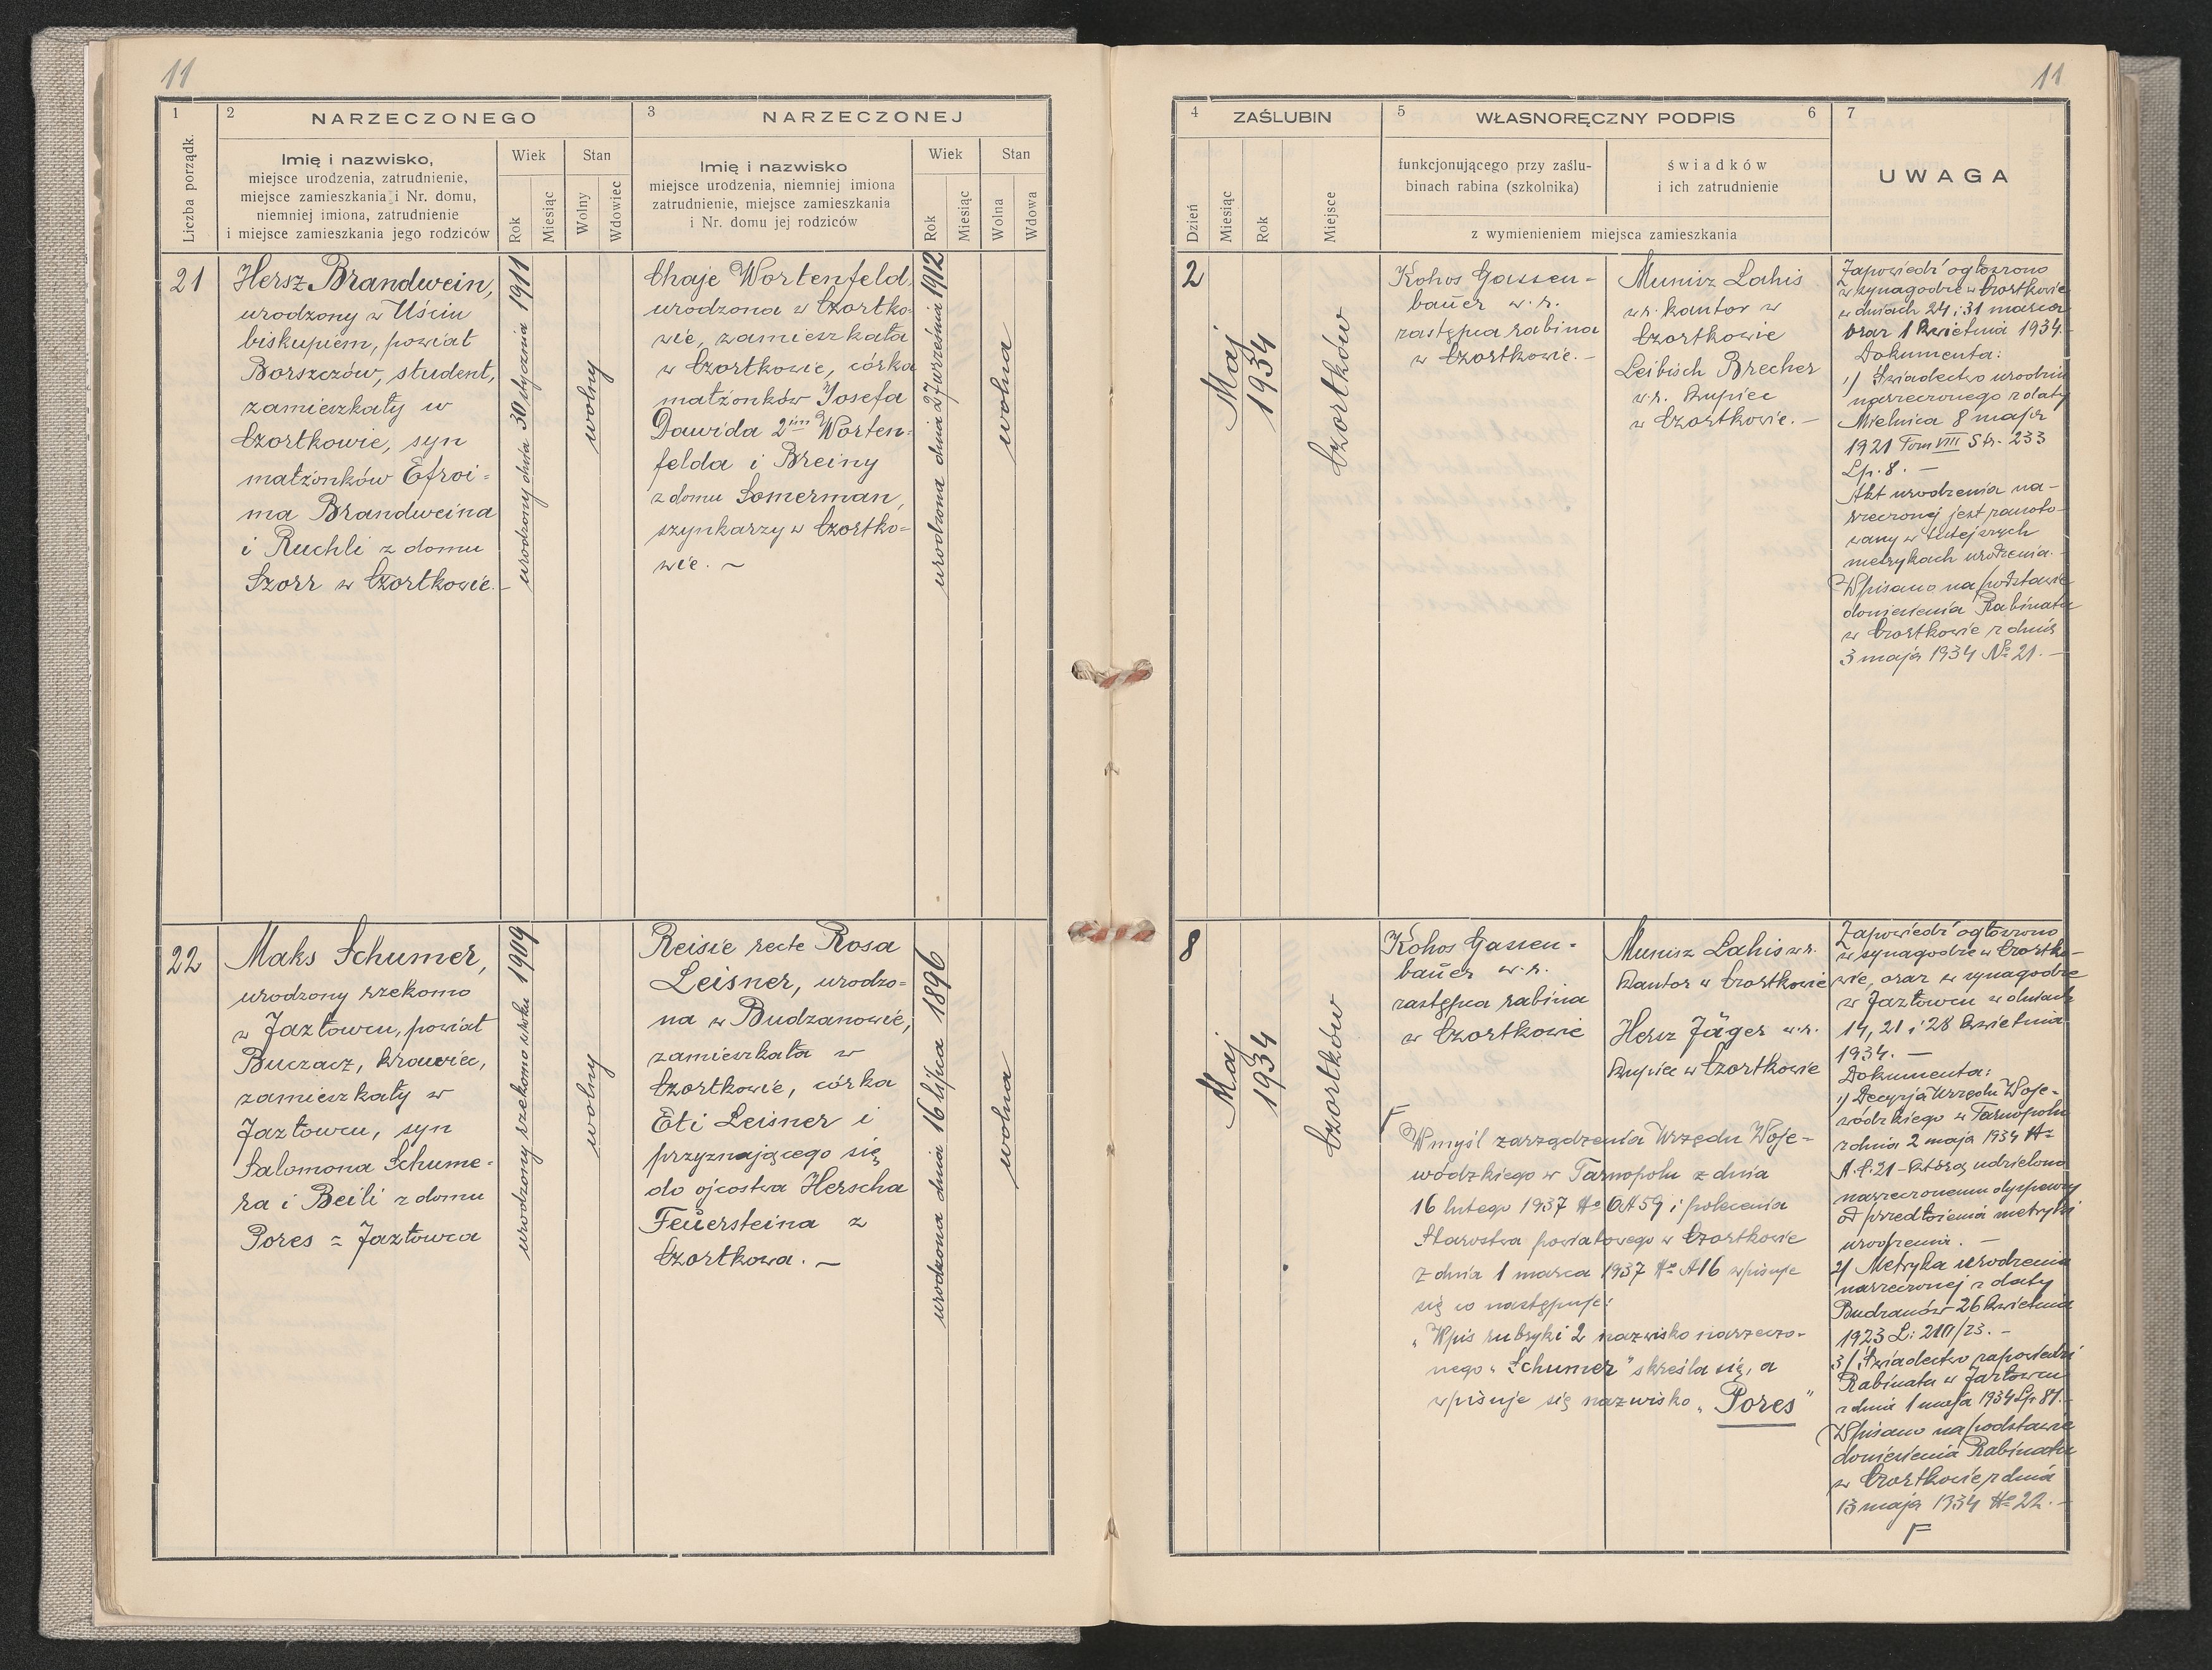 11
1
Liczba porządk.
2
NARZECZONEGO
Imię i nazwisko,
miejsce urodzenia, zatrudnienie,
miejsce zamieszkania i Nr. domu,
niemniej imiona, zatrudnienie
i miejsce zamieszkania jego rodziców
Wiek
Rok
Miesiąc
Stan
Wolny
Wdowiec
3
NARZECZONEJ
Imię i nazwisko
miejsce urodzenia, niemniej imiona
zatrudnienie, miejsce zamieszkania
i Nr. domu jej rodziców
Wiek
Rok
Miesiąc
Stan
Wolna
Wdowa
21
Hersz Brandwein,
urodzony w Uściu
biskupiem, powiat
Borszczów, student,
zamieszkały w
Czortkowie, syn
małżonków Efroi=
ma Brandweina
i Ruchli z domu
Szorr w Czortkowie.-
urodzony dnia 30 stycznia 1911
wolny
Chaje Wortenfeld,
urodzona w Czortko-
wie, zamieszkała
w Czortkowie, córka
małżonków Josefa
Dawida 2im Worten-
felda i Breiny
z domu Somerman,
szynkarzy w Czortko=
wie. ~
urodzona dnia 27 września 1912
wolna
22
Maks Schumer,
urodzony rzekomo
w Jazłowcu, powiat
Buczacz, krawiec,
zamieszkały w
Jazłowcu, syn
Salomona Schume-
ra i Beili z domu
Pores = Jazłowca
urodzony rzekomo w roku 1909
wolny
Reisie recte Rosa
Leisner, urodzo=
na w Budzanowie,
zamieszkała w
Czortkowie, córka
Eti Leisner i
przyznającego się
do ojcostwa Herscha
Feuersteina z
Czortkowa. ~
urodzona dnia 16 lipca 1896
wolna
11
4
ZAŚLUBIN
Dzień
Miesiąc
Rok
Miejsce
5
WŁASNORĘCZNY PODPIS
6
funkcjonującego przy zaślu-
binach rabina (szkolnika)
świadków
i ich zatrudnienie
z wymienieniem miejsca zamieszkania
7
UWAGA
2
Maj
1934
Czortków
Kohos Gassen-
bauer w.r.
zastępca rabina
w Czortkowie.-
Munisz Lahis
w.r. kantor w
Czortkowie
Leibisch Brecher
w.r. kupiec
w Czortkowie.-
Zapowiedź ogłoszono
w synagodze w Czortkowie
w dniach 24 i 31 marca
oraz 1 kwietnia 1934.-
Dokumenta:
1/ Świadectwo urodzin
narzeczonego z daty
Mielnica 8 maja
1921 Tom VIII Str. 233
Lp. 8. -
Akt urodzenia na-
rzeczonej jest zanoto-
wany w tutejszych
metrykach urodzenia.-
Wpisano na podstawie
doniesienia Rabinatu
w Czortkowie z dnia
3 maja 1934 No 21.-
8
Maj
1934
Czortków
Kohos Gassen-
bauer w.r.
zastępca rabina
w Czortkowie
Munisz Lahis w.r.
kantor w Czortkowie
Hersz Jäger w.r.
kupiec w Czortkowie
Γ
W myśl zarządzenia Urzędu Woje-
wódzkiego w Tarnopolu z dnia
16 lutego 1937 No OA 59 i polecenia
Starostwa powiatowego w Czortkowie
z dnia 1 marca 1937 No A 16 wpisuje
się co następuje:
„Wpis rubryki 2 nazwisko narzeczo-
nego „Schumer" skreśla się, a
wpisuje się nazwisko „Pores"
Zapowiedź ogłoszono
w synagodze w Czortko-
wie, oraz w synagodze
w Jazłowcu w dniach
14, 21 i 28 kwietnia
1934. -
Dokumenta:
1/ Decyzja Urzędu Woje-
wódzkiego w Tarnopolu
z dnia 2 maja 1934 No
A.P.21 - którą udzielono
narzeczonemu dyspensy
od przedłożenia metryki
urodzenia. -
2/ Metryka urodzenia
narzeczonej z daty
Budzanów 26 kwietnia
1923 L: 210/23. -
3/ Świadectwo zapowiedzi
Rabinatu w Jazłowcu
z dnia 1 maja 1934 Lp 81.-
Wpisano na podstawie
doniesienia Rabinatu
w Czortkowie z dnia
13 maja 1934 No 22.-
Γ